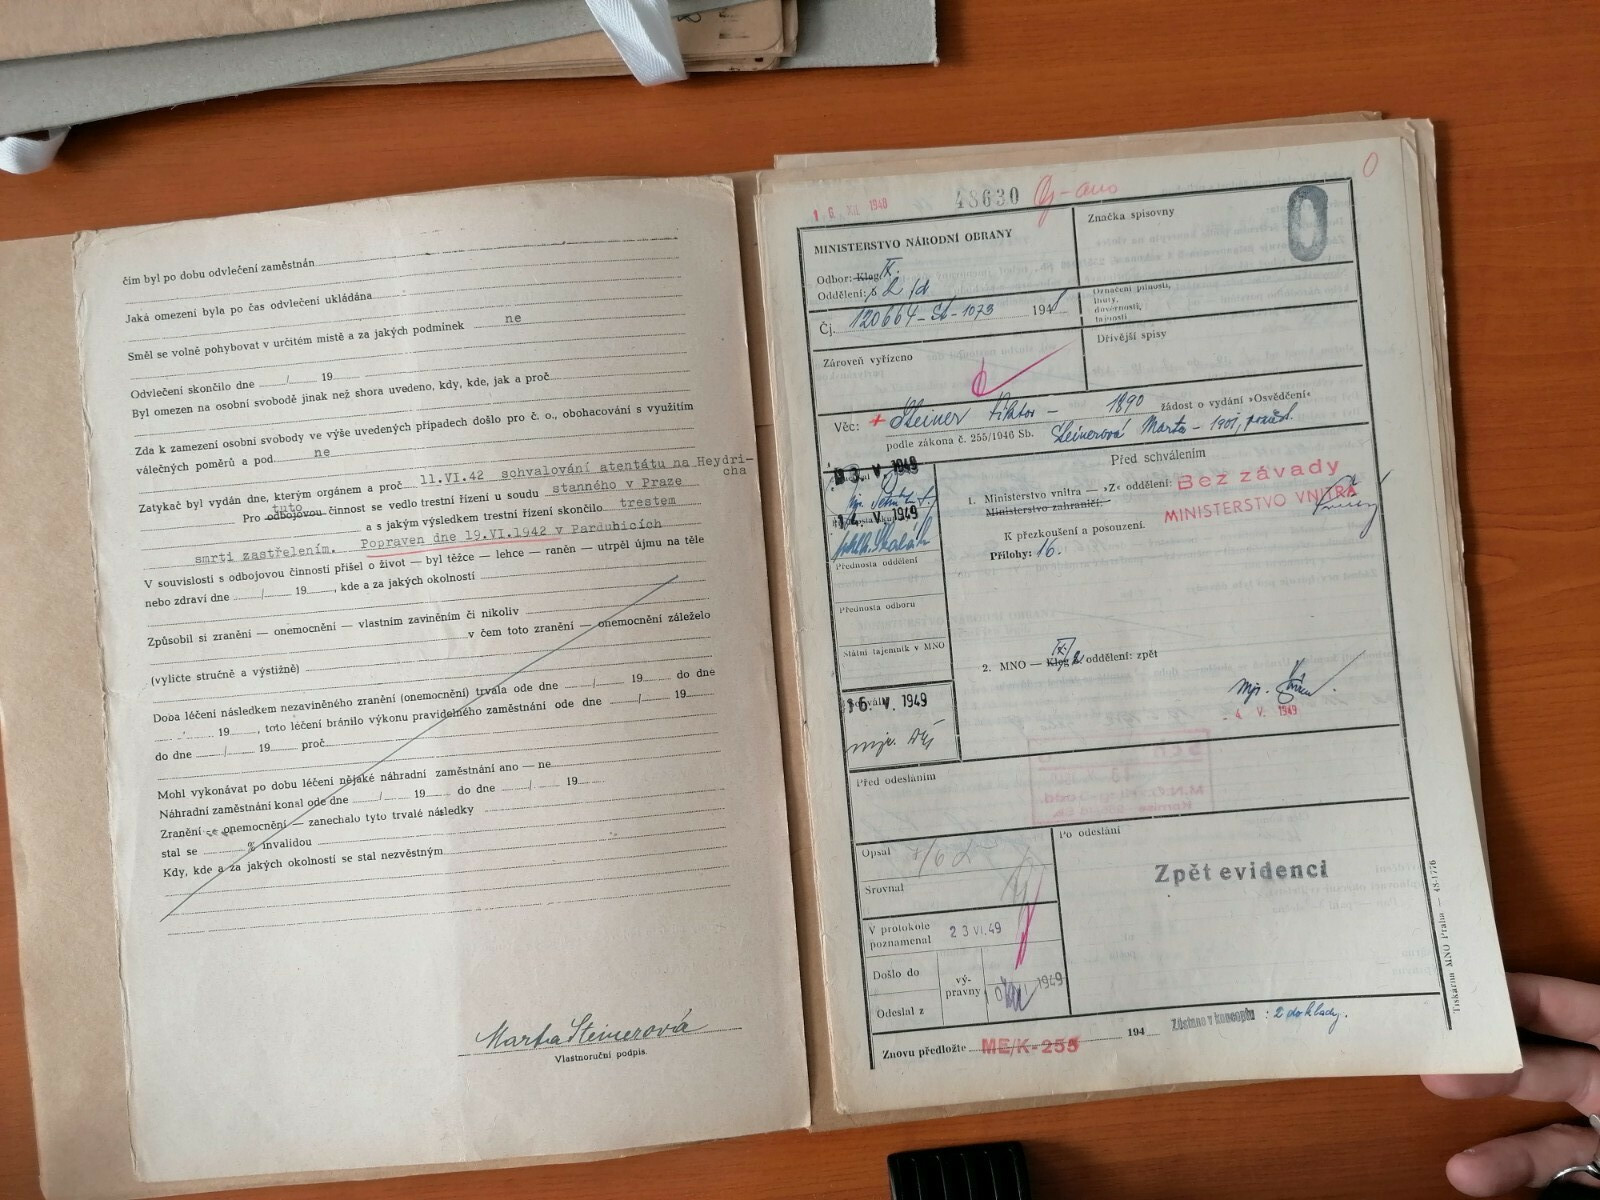 čím byl po dobu odvlečení zaměstnán
Jaká omezení byla po čas odvlečení ukládána
Směl se volně pohybovat v určitém místě a za jakých podmínek ne
Odvlečení skončilo dne / 19
Byl omezen na osobní svobodě jinak než shora uvedeno, kdy, kde, jak a proč
Zda k zamezení osobní svobody ve výše uvedených případech došlo pro č. o., obohacování s využitím
válečných poměrů a pod. ne
Zatykač byl vydán dne, kterým orgánem a proč 11.VI.42 schvalování atentátu na Heydri-
cha
Pro odbojovou tuto činnost se vedlo trestní řízení u soudu stanného v Praze
a s jakým výsledkem trestní řízení skončilo trestem
smrti zastřelením. Popraven dne 19.VI.1942 v Pardubicích
V souvislosti s odbojovou činností přišel o život — byl těžce — lehce — raněn — utrpěl újmu na těle
nebo zdraví dne / 19 , kde a za jakých okolností
Způsobil si zranění — onemocnění — vlastním zaviněním či nikoliv
v čem toto zranění — onemocnění záleželo
(vylíčte stručně a výstižně)
Doba léčení následkem nezaviněného zranění (onemocnění) trvala ode dne / 19 do dne
19 , toto léčení bránilo výkonu pravidelného zaměstnání ode dne / 19
do dne / 19 proč
Mohl vykonávat po dobu léčení nějaké náhradní zaměstnání ano — ne
Náhradní zaměstnání konal ode dne / 19 do dne / 19
Zranění — onemocnění — zanechalo tyto trvalé následky
stal se % invalidou
Kdy, kde a za jakých okolností se stal nezvěstným
Marta Steinerová
Vlastnoruční podpis.
16. XII. 1948 48630 ano
0
MINISTERSTVO NÁRODNÍ OBRANY
Značka spisovny
0
Odbor: Klog IX.
Oddělení:
Čj. 120664-St-1073 1948
Označení pilnosti,
lhůty,
důvěrnosti,
tajnosti
Zároveň vyřízeno
Dřívější spisy
Věc: + Steiner Viktor - 1890 žádost o vydání »Osvědčení«
podle zákona č. 255/1946 Sb. Steinerová Marta - 1901, pozůst.
Před schválením
3. V. 1949
14. V. 1949
Přednosta oddělení
Přednosta odboru
Státní tajemník v MNO
16. V. 1949
1. Ministerstvo vnitra — »Z« oddělení: Bez závady
Ministerstvo zahraničí: MINISTERSTVO VNITRA
K přezkoušení a posouzení.
Přílohy: 16.
2. MNO — Klog IX. 2 oddělení: zpět
- 4. V. 1949
Před odesláním
Opsal
Srovnal
Po odeslání
Zpět evidenci
V protokole
poznamenal 23 VI. 49
Došlo do
Odeslal z
vý-
pravny
1949
Znovu předložte ME/K-255 194
Zůstano v konceptu : 2 doklady.
Tiskárna MNO Praha — 48-1776